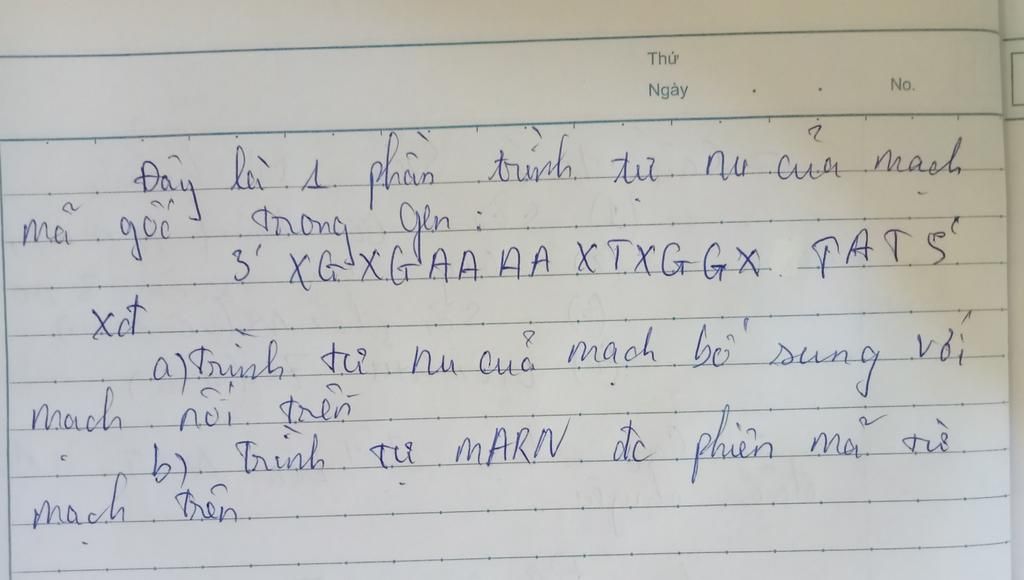 Thứ
Ngày . . No.
Đây là 1 phần trình tự nu của mạch
mã gốc trong gen:
3' XGXGAAAAXTXGGX TAT 5'
xđ
a) Trình tự nu của mạch bổ sung với
mạch nói trên
b) Trình tự mARN đc phiên mã từ
mạch trên